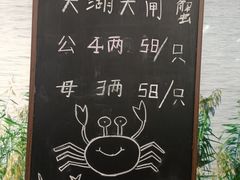 大湖大闸蟹
公 4两 58/只
母 3两 58/只